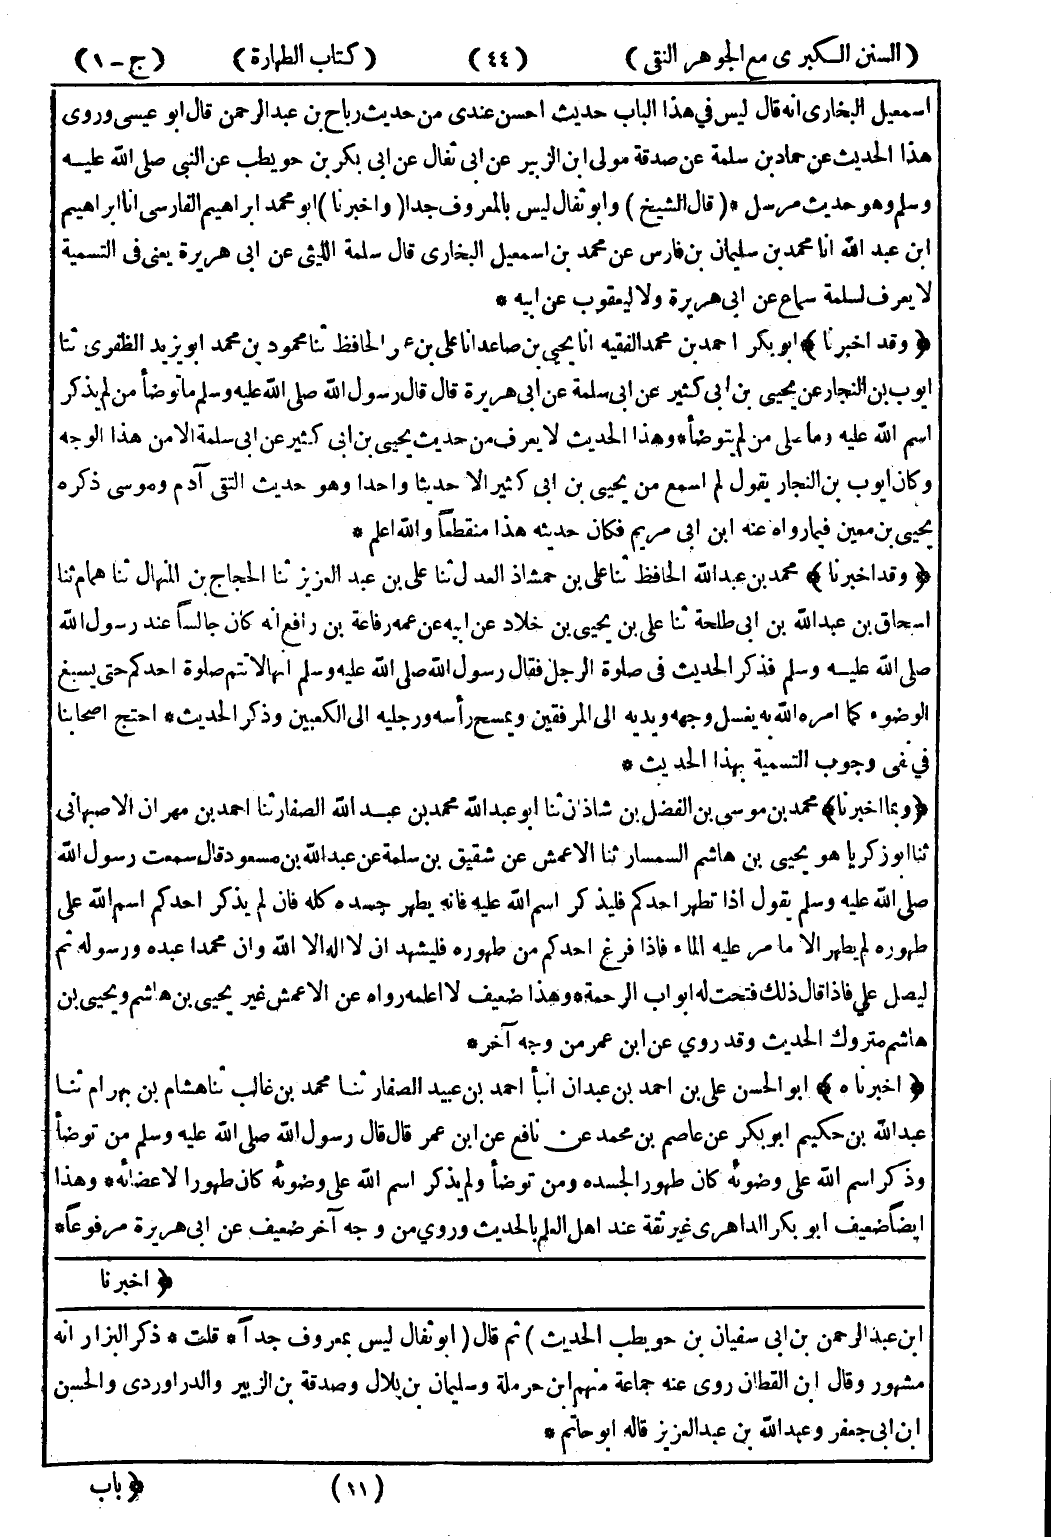 (السنن الكبرى مع الجوهر النقى) (٤٤) (كتاب الطهارة) (ج-١)
اسمعيل البخارى انه قال ليس في هذا الباب حديث احسن عندى من حديث رباح بن عبدالرحمن قال ابو عيسى وروى
هذا الحديث عن حماد بن سلمة عن صدقة مولى ابن الزبير عن ابى ثفال عن ابى بكر بن حويطب عن النبي صلى الله عليه
وسلم وهو حديث مرسل * (قال الشيخ) وابو ثفال ليس بالمعروف جدا (واخبرنا) ابو محمد ابراهيم الفارسى انا ابراهيم
ابن عبد الله انا محمد بن سليمان بن فارس عن محمد بن اسمعيل البخارى قال سلمة الليثى عن ابى هريرة يعنى فى التسمية
لا يعرف لسلمة سماع عن ابى هريرة ولا ليعقوب عن ابيه *
﴿ وقد اخبرنا ﴾ ابو بكر احمد بن محمد الفقيه انا يحيى بن صاعد انا على بن عمر الحافظ ثنا محمود بن محمد ابو يزيد الظفرى ثنا
ايوب بن النجار عن يحيى بن ابى كثير عن ابى سلمة عن ابى هريرة قال قال رسول الله صلى الله عليه وسلم ما توضأ من لم يذكر
اسم الله عليه وما صلى من لم يتوضأ * وهذا الحديث لا يعرف من حديث يحيى بن ابى كثير عن ابى سلمة الا من هذا الوجه
وكان ايوب بن النجار يقول لم اسمع من يحيى بن ابى كثير الا حديثا واحدا وهو حديث التقى آدم وموسى ذكره
يحيى بن معين فيما رواه عنه ابن ابى مريم فكان حديثه هذا منقطعاً والله اعلم *
﴿ وقد اخبرنا ﴾ محمد بن عبدالله الحافظ ثنا على بن حمشاذ العدل ثنا على بن عبد العزيز ثنا الحجاج بن المنهال ثنا همام ثنا
اسحاق بن عبدالله بن ابى طلحة ثنا على بن يحيى بن خلاد عن ابيه عن عمه رفاعة بن رافع انه كان جالساً عند رسول الله
صلى الله عليه وسلم فذكر الحديث فى صلوة الرجل فقال رسول الله صلى الله عليه وسلم انها لا تتم صلوة احدكم حتى يسبغ
الوضوء كما امره الله به يغسل وجهه ويديه الى المرفقين ويمسح رأسه ورجليه الى الكعبين وذكر الحديث * احتج اصحابنا
في نفى وجوب التسمية بهذا الحديث *
﴿وبما اخبرنا﴾ محمد بن موسى بن الفضل بن شاذان ثنا ابو عبدالله محمد بن عبد الله الصفار ثنا احمد بن مهران الاصبهانى
ثنا ابو زكريا هو يحيى بن هاشم السمسار ثنا الاعمش عن شقيق بن سلمة عن عبدالله بن مسعود قال سمعت رسول الله
صلى الله عليه وسلم يقول اذا تطهر احدكم فليذكر اسم الله عليه فانه يطهر جسده كله فان لم يذكر احدكم اسم الله على
طهوره لم يطهر الا ما مر عليه الماء فاذا فرغ احدكم من طهوره فليشهد ان لا اله الا الله وان محمدا عبده ورسوله ثم
ليصل علي فاذا قال ذلك فتحت له ابواب الرحمة * وهذا ضعيف لا اعلمه رواه عن الاعمش غير يحيى بن هاشم ويحيى بن
هاشم متروك الحديث وقد روي عن ابن عمر من وجه آخر *
﴿ اخبرناه ﴾ ابو الحسن على بن احمد بن عبدان انبأ احمد بن عبيد الصفار ثنا محمد بن غالب ثنا هشام بن بهرام ثنا
عبدالله بن حكيم ابو بكر عن عاصم بن محمد عن نافع عن ابن عمر قال قال رسول الله صلى الله عليه وسلم من توضأ
وذكر اسم الله على وضوئه كان طهورا لجسده ومن توضأ ولم يذكر اسم الله على وضوئه كان طهورا لاعضائه * وهذا
ايضاً ضعيف ابو بكر الداهرى غير ثقة عند اهل العلم بالحديث وروي من وجه آخر ضعيف عن ابى هريرة مرفوعاً *
﴿ اخبرنا
ابن عبد الرحمن بن ابى سفيان بن حويطب الحديث) ثم قال (ابو ثفال ليس بمعروف جداً * قلت * ذكر البزار انه
مشهور وقال ابن القطان روى عنه جماعة منهم ابن حرملة وسليمان بن بلال وصدقة بن الزبير والدراوردى والحسن
ابن ابى جعفر وعبدالله بن عبدالعزيز قاله ابو حاتم *
(١١) ﴿ باب